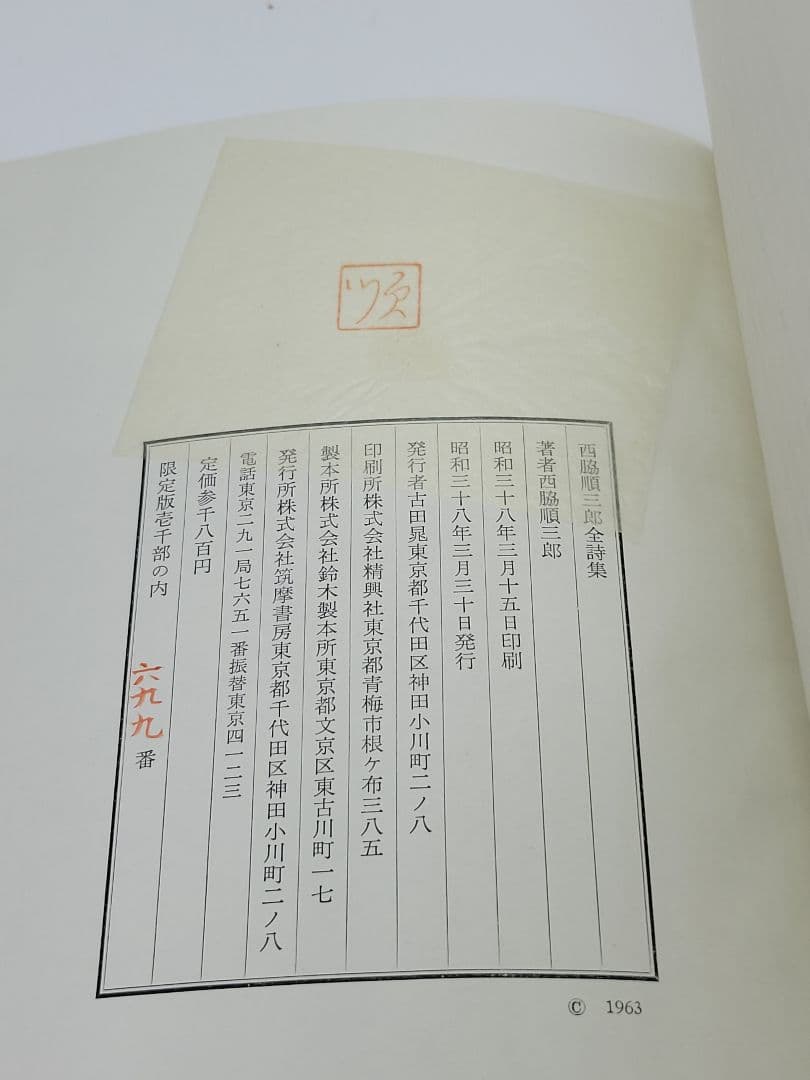 順
西脇順三郎全詩集
著者西脇順三郎
昭和三十八年三月十五日印刷
昭和三十八年三月三十日発行
発行者古田晁東京都千代田区神田小川町二ノ八
印刷所株式会社精興社東京都青梅市根ケ布三八五
製本所株式会社鈴木製本所東京都文京区東古川町一七
発行所株式会社筑摩書房東京都千代田区神田小川町二ノ八
電話東京二九一局七六五一番振替東京四一二三
定価参千八百円
限定版壱千部の内 六九九 番
© 1963